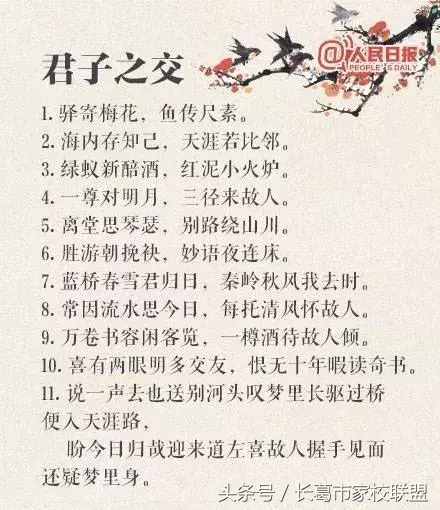 君子之交
@人民日报
PEOPLE'S DAILY
1. 驿寄梅花，鱼传尺素。
2. 海内存知己，天涯若比邻。
3. 绿蚁新醅酒，红泥小火炉。
4. 一尊对明月，三径来故人。
5. 离堂思琴瑟，别路绕山川。
6. 胜游朝挽袂，妙语夜连床。
7. 蓝桥春雪君归日，秦岭秋风我去时。
8. 常因流水思今日，每托清风怀故人。
9. 万卷书容闲客览，一樽酒待故人倾。
10. 喜有两眼明多交友，恨无十年暇读奇书。
11. 说一声去也送别河头叹梦里长驱过桥
便入天涯路，
盼今日归哉迎来道左喜故人握手见面
还疑梦里身。
头条号／长葛市家校联盟